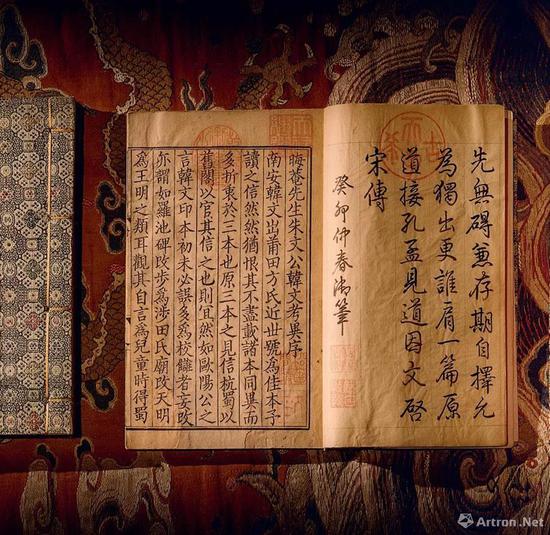 先無礙兼存期自擇允
為獨出更誰肩一篇原
道接孔孟見道因文啓
宋傳
癸卯仲春御筆
晦菴先生朱文公韓文考異序
南安韓文出莆田方氏近世號為佳本予
讀之信然然猶恨其不盡載諸本同異而
多折衷於三本也原三本之見信杭蜀以
舊閣以官其信之也則宜然如歐陽公之
言韓文印本初未必誤多為校讎者妄改
亦謂如羅池碑改步為涉田氏廟改天明
為王明之類耳觀其自言為兒童時得蜀
Artron.Net